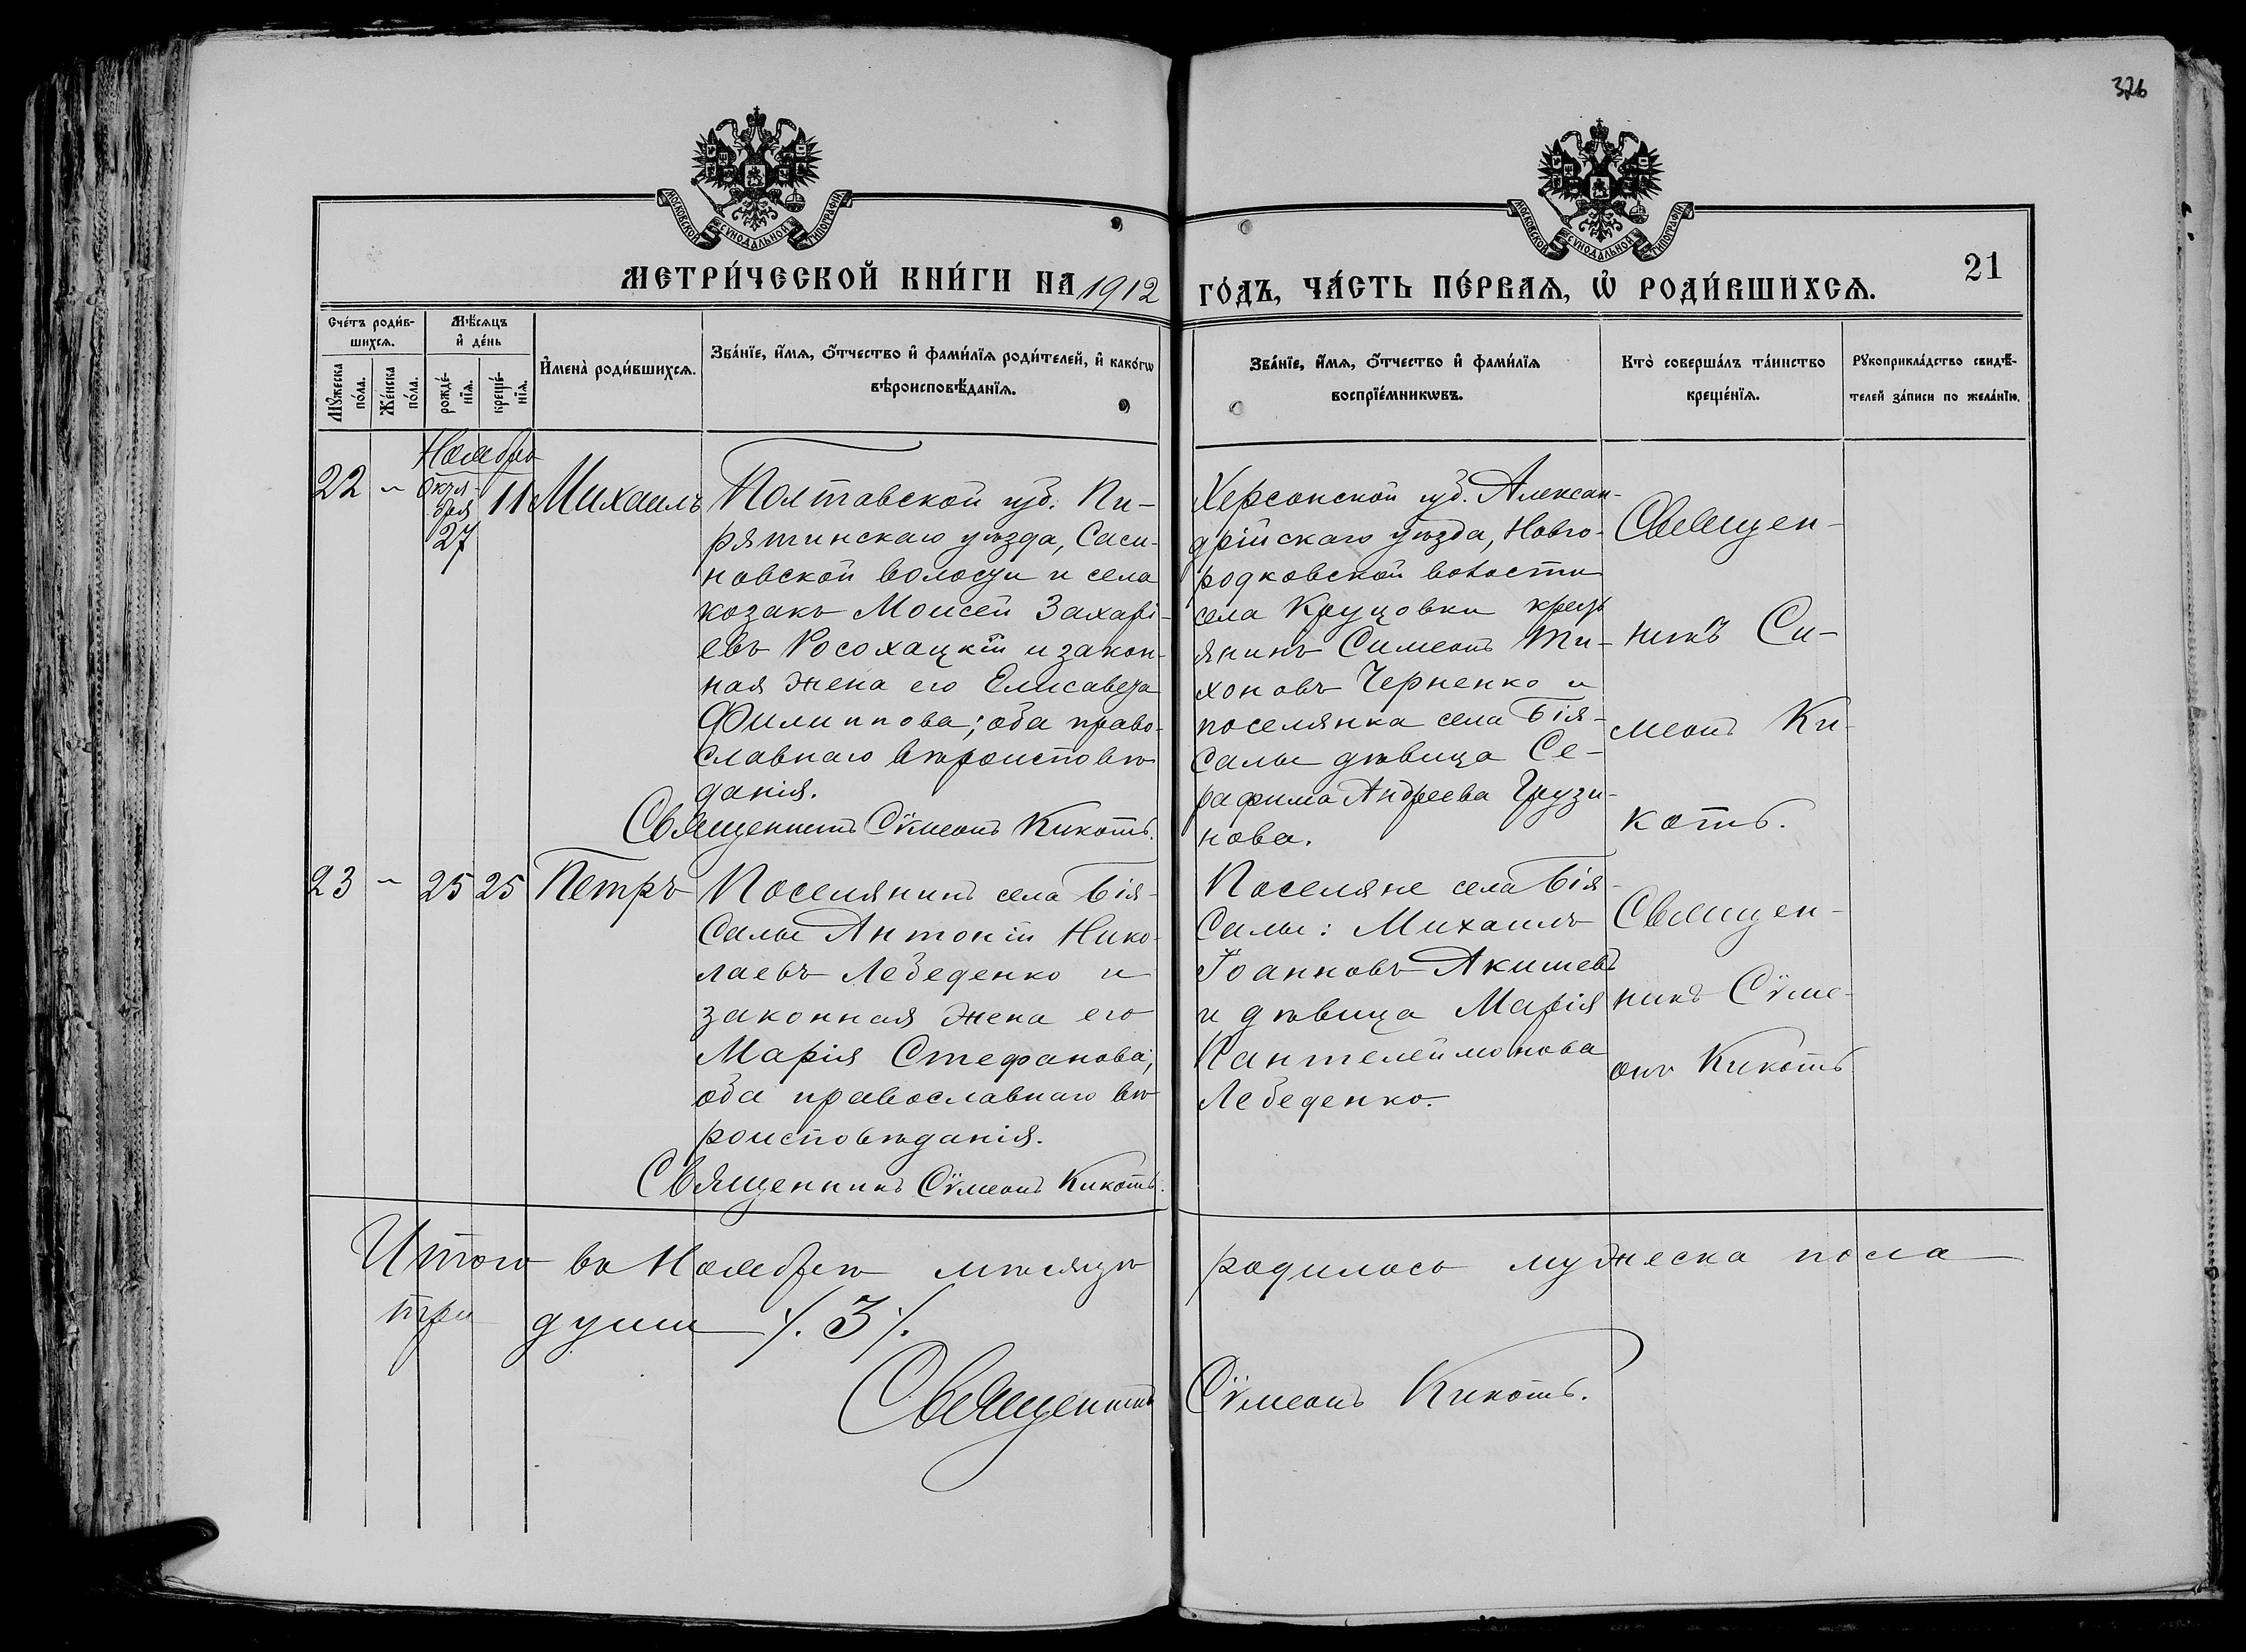 326
МОСКОВСКОЙ СУНОДАЛЬНОЙ ТИПОГРАФІИ
МОСКОВСКОЙ СУНОДАЛЬНОЙ ТИПОГРАФІИ
МЕТРИ́ЧЕСКОЙ КНИ́ГИ НА 1912
ГО́ДЪ, ЧА́СТЬ ПЕ́РВАѦ, Ѡ҆ РОДИ́ВШИХСѦ.
21
Сче́тъ роди́в-
шихсѧ.
Мѣ́сѧцъ
и҆ де́нь
Мꙋ́жеска
по́ла.
Же́нска
по́ла.
рожде́-
нїѧ.
креще́-
нїѧ.
И҆мена̀ роди́вшихсѧ.
Зва́нїе, и҆́мѧ, ѻ҆́тчество и҆ фами́лїѧ роди́телей, и҆ како́гѡ
вѣроисповѣ́данїѧ.
Зва́нїе, и҆́мѧ, ѻ҆́тчество и҆ фами́лїѧ
воспрїе́мникѡвъ.
Кто̀ соверша́лъ та́инство
креще́нїѧ.
Рꙋкоприкла́дство свидѣ́-
телей за́писи по жела́нїю.
Ноябрь
22 - Октя-
бря
27
11 Михаилъ
Полтавской губ. Пи-
рятинскаго уѣзда, Саси-
новской волости и села
козакъ Моисей Захарі-
евъ Росохацкій и закон-
ная жена его Елисавета
Филиппова; оба право-
славнаго вѣроисповѣ-
данія.
Священникъ Сѵмеонъ Кикоть.
Херсонской губ. Алексан-
дрійскаго уѣзда, Новго-
родковской волости
села Круцовки кресть
янинъ Симеонъ Ти-
хоновъ Черненко и
поселянка села Бія-
Салы дѣвица Се-
рафима Андреева Грузи-
нова.
Священ-
никъ Си-
меонъ Ки-
коть.
23 - 25 25 Петръ
Поселянинъ села Бія-
Салы Антоній Нико-
лаевъ Лебеденко и
законная жена его
Марія Стефанова;
оба православнаго вѣ
роисповѣданія.
Священникъ Сѵмеонъ Кикоть.
Поселяне села Бія-
Салы: Михаилъ
Іоанновъ Акишевъ
и дѣвица Марія
Пантелеймонова
Лебеденко.
Священ-
никъ Сѵме-
онъ Кикоть
Итого въ Ноябрѣ мѣсяцѣ родилось мужеска пола
три души /. 3 /.
Священникъ Сѵмеонъ Кикоть.